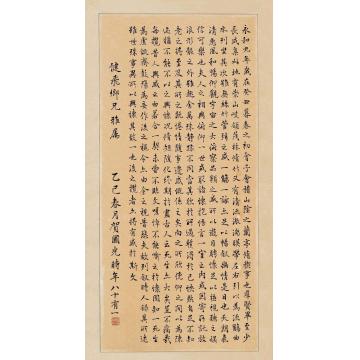 永和九年歲在癸丑暮春之初會于會稽山陰之蘭亭脩稧事也群賢畢至少
長咸集此地有崇山峻領茂林脩竹又有清流激湍暎帶左右引以為流觴曲
水列坐其次雖無絲竹管弦之盛一觴一詠亦足以暢叙幽情是日也天朗氣
清惠風和暢仰觀宇宙之大俯察品類之盛所以遊目騁懷足以極視聽之娛
信可樂也夫人之相與俯仰一世或取諸懷抱悟言一室之內或因寄所託放
浪形骸之外雖趣舍萬殊靜躁不同當其欣於所遇暫得於己怏然自足不知
老之將至及其所之既惓情隨事遷感慨係之矣向之所欣俛仰之間以為陳
迹猶不能不以之興懷況脩短隨化終期於盡古人云死生亦大矣豈不痛哉
每攬昔人興感之由若合一契未嘗不臨文嗟悼不能喻之於懷固知一死生
為虛誕齊彭殤為妄作後之視今亦由今之視昔悲夫故列叙時人錄其所述
雖世殊事異所以興懷其致一也後之攬者亦將有感於斯文
健飛鄉兄雅属
乙巳春月賀國光時年八十有一